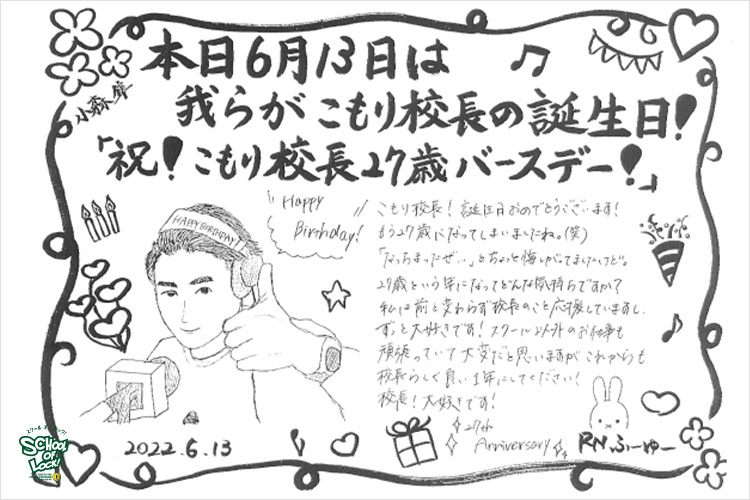 本日6月13日は
我らが こもり校長の誕生日!
小森隼
「祝! こもり校長27歳バースデー!」
HAPPY BIRTHDAY
Happy
Birthday!
こもり校長! 誕生日おめでとうございます!
もう27歳になってしまいましたね。(笑)
「なっちまったぜ…」とちょっと悔しがってましたけど。
27歳という年になってどんな気持ちですか?
私は前と変わらず校長のこと応援していますし、
ずっと大好きです! スクール以外のお仕事も
頑張っていて大変だと思いますが これからも
校長らしく良い1年にしてください!
校長! 大好きです!
2022.6.13
27th
Anniversary
RN ふーゆー
スクールオブロック!
SCHOOL
OF
LOCK!